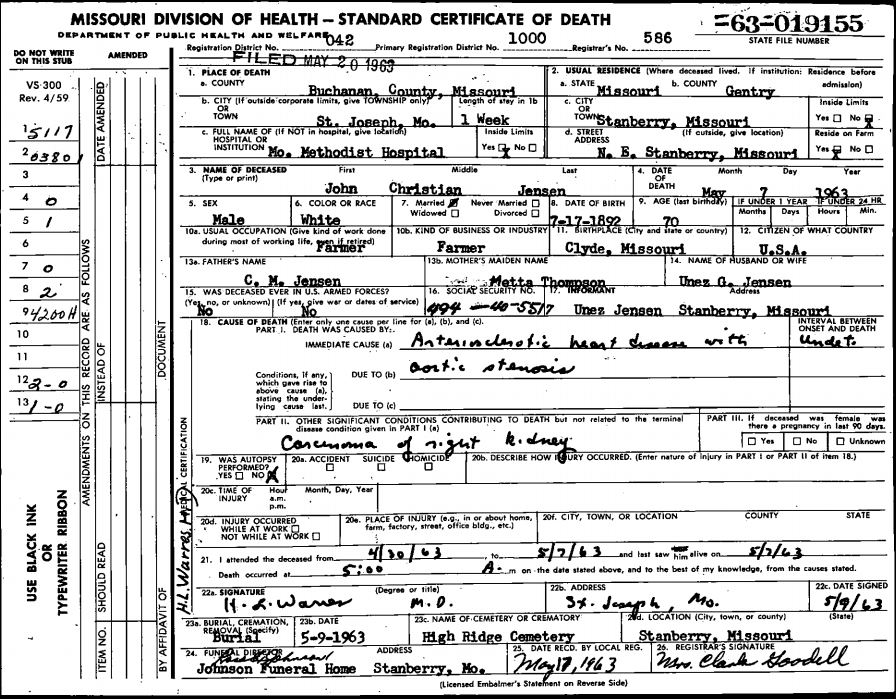 MISSOURI DIVISION OF HEALTH — STANDARD CERTIFICATE OF DEATH
=63-019155
DEPARTMENT OF PUBLIC HEALTH AND WELFARE
STATE FILE NUMBER
Registration District No. 042 Primary Registration District No. 1000 Registrar's No. 586
FILED MAY 20 1963
DO NOT WRITE ON THIS STUB
AMENDED
VS-300
Rev. 4/59
DATE AMENDED
1 5117
2 0380
3
4 0
5 1
6
7 0
8 2
9 4200H
10
11
12 2-0
13 1-0
AMENDMENTS ON THIS RECORD ARE AS FOLLOWS
INSTEAD OF
DOCUMENT
SHOULD READ
ITEM NO.
BY AFFIDAVIT OF
USE BLACK INK
OR
TYPEWRITER RIBBON
MEDICAL CERTIFICATION
1. PLACE OF DEATH
a. COUNTY Buchanan, County, Missouri
b. CITY (If outside corporate limits, give TOWNSHIP only) OR TOWN St. Joseph, Mo.
Length of stay in 1b 1 Week
c. FULL NAME OF (If NOT in hospital, give location) HOSPITAL OR INSTITUTION Mo. Methodist Hospital
Inside Limits Yes X No
2. USUAL RESIDENCE (Where deceased lived. If institution: Residence before admission)
a. STATE Missouri b. COUNTY Gentry
c. CITY OR TOWN Stanberry, Missouri
Inside Limits Yes No X
d. STREET ADDRESS (If outside, give location) N. E. Stanberry, Missouri
Reside on Farm Yes X No
3. NAME OF DECEASED (Type or print) First Middle Last
John Christian Jensen
4. DATE OF DEATH Month Day Year
May 7 1963
5. SEX Male
6. COLOR OR RACE White
7. Married X Never Married Widowed Divorced
8. DATE OF BIRTH 7-17-1892
9. AGE (last birthday) 70
IF UNDER 1 YEAR Months Days
IF UNDER 24 HR Hours Min.
10a. USUAL OCCUPATION (Give kind of work done during most of working life, even if retired) Farmer
10b. KIND OF BUSINESS OR INDUSTRY Farmer
11. BIRTHPLACE (City and state or country) Clyde, Missouri
12. CITIZEN OF WHAT COUNTRY U.S.A.
13a. FATHER'S NAME C. M. Jensen
13b. MOTHER'S MAIDEN NAME Metta Thompson
14. NAME OF HUSBAND OR WIFE Unez G. Jensen
15. WAS DECEASED EVER IN U.S. ARMED FORCES? (Yes, no, or unknown) (If yes, give war or dates of service) No No
16. SOCIAL SECURITY NO. 494-40-5517
17. INFORMANT Address
Unez Jensen Stanberry, Missouri
18. CAUSE OF DEATH (Enter only one cause per line for (a), (b), and (c).
PART I. DEATH WAS CAUSED BY:
INTERVAL BETWEEN ONSET AND DEATH
IMMEDIATE CAUSE (a) Arteriosclerotic heart disease with Undet.
Conditions, if any, which gave rise to above cause (a), stating the underlying cause last.
DUE TO (b) aortic stenosis
DUE TO (c)
PART II. OTHER SIGNIFICANT CONDITIONS CONTRIBUTING TO DEATH but not related to the terminal disease condition given in PART I (a)
Carcinoma of right kidney
PART III. If deceased was female was there a pregnancy in last 90 days.
Yes No Unknown
19. WAS AUTOPSY PERFORMED? YES NO X
20a. ACCIDENT SUICIDE HOMICIDE
20b. DESCRIBE HOW INJURY OCCURRED. (Enter nature of injury in PART I or PART II of item 18.)
20c. TIME OF INJURY Hour a.m. p.m. Month, Day, Year
20d. INJURY OCCURRED WHILE AT WORK NOT WHILE AT WORK
20e. PLACE OF INJURY (e.g., in or about home, farm, factory, street, office bldg., etc.)
20f. CITY, TOWN, OR LOCATION COUNTY STATE
21. I attended the deceased from 4/30/63, to 5/7/63 and last saw him alive on 5/7/63
Death occurred at 5:00 A. m on the date stated above, and to the best of my knowledge, from the causes stated.
22a. SIGNATURE (Degree or title) M.D.
22b. ADDRESS St. Joseph, Mo.
22c. DATE SIGNED 5/9/63
23a. BURIAL, CREMATION, REMOVAL (Specify) Burial
23b. DATE 5-9-1963
23c. NAME OF CEMETERY OR CREMATORY High Ridge Cemetery
23d. LOCATION (City, town, or county) (State) Stanberry, Missouri
24. FUNERAL DIRECTOR ADDRESS
Johnson Funeral Home Stanberry, Mo.
25. DATE RECD. BY LOCAL REG. May 17, 1963
26. REGISTRAR'S SIGNATURE Mrs. Clark Goodell
(Licensed Embalmer's Statement on Reverse Side)